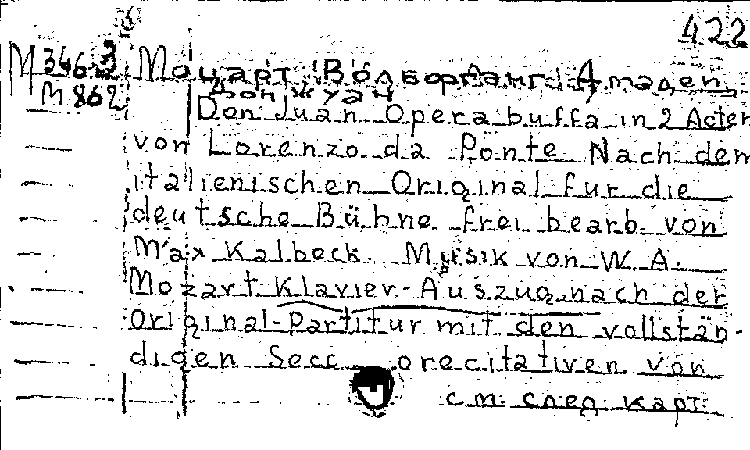 422
М 346-3 Моцарт Вольфганг Амадей
М 862 Дон Жуан
Don Juan Opera buffa in 2 Acten
von Lorenzo da Ponte Nach dem
italienischen Original fur die
deutsche Bühne frei bearb. von
Max Kalbeck. Musik von W. A.
Mozart Klavier-Auszug nach der
Original-Partitur mit den vollstän-
digen Secc orecitativen von
см. след карт.